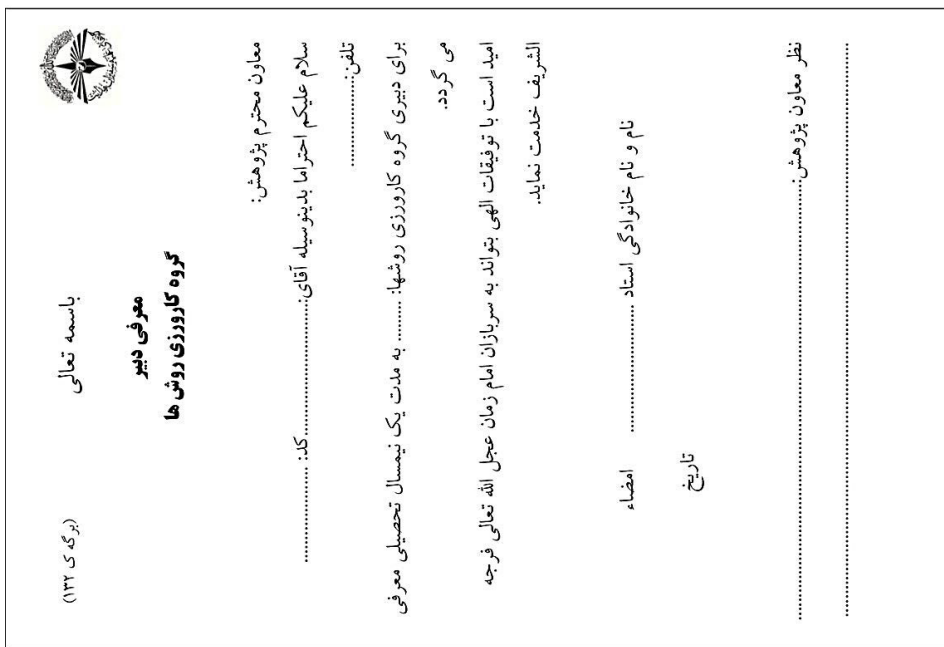 باسمه تعالی
(برگه ک ۱۳۲)
معرفی دبیر
گروه کارورزی روش ها
معاون محترم پژوهش:
سلام علیکم احتراما بدینوسیله آقای:..............................کد: ......................
تلفن:......................
برای دبیری گروه کارورزی روشها: ........ به مدت یک نیمسال تحصیلی معرفی
می گردد.
امید است با توفیقات الهی بتواند به سربازان امام زمان عجل الله تعالی فرجه
الشریف خدمت نماید.
نام و نام خانوادگی استاد ............................ امضاء
تاریخ
نظر معاون پژوهش:................................................................................
................................................................................................................